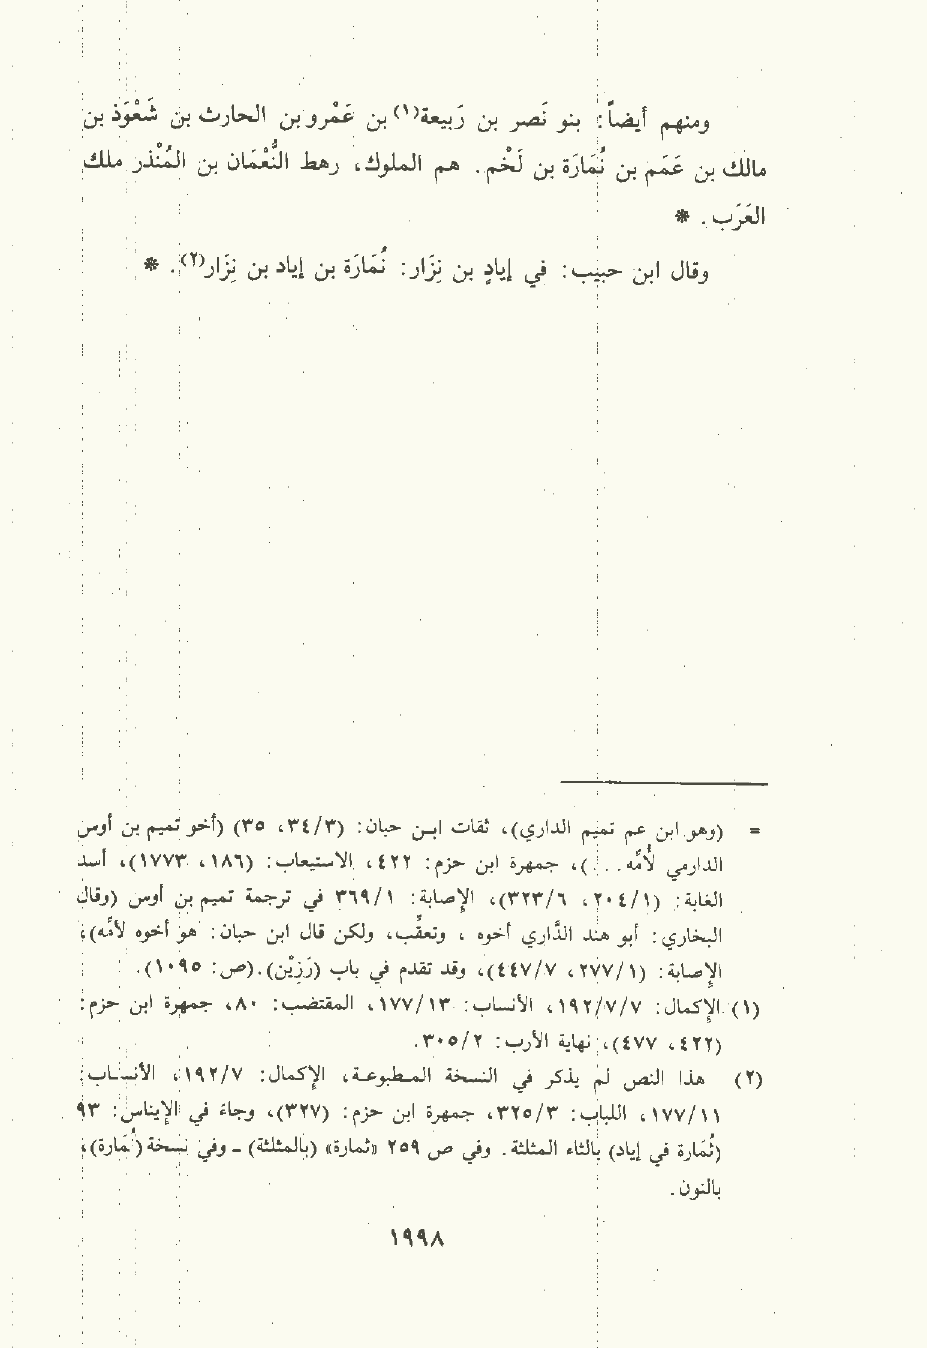 ومنهم أيضاً: بنو نَصر بن رَبيعة(١) بن عَمْرو بن الحارث بن شَعْوَذ بن
مالك بن عَمَم بن نُمَارَة بن لَخْم. هم الملوك، رهط النُّعْمَان بن المُنْذر ملك
العَرَب. *
وقال ابن حبيب: في إيادِ بن نِزَار: نُمَارَة بن إياد بن نِزَار(٢). *
= (وهو ابن عم تميم الداري)، ثقات ابن حبان: (٣/ ٣٤، ٣٥) (أخو تميم بن أوس
الدارمي لأُمِّه...)، جمهرة ابن حزم: ٤٢٢، الاستيعاب: (١٨٦، ١٧٧٣)، أسد
الغابة: (١/ ٢٠٤، ٦/ ٣٢٣)، الإصابة: ١/ ٣٦٩ في ترجمة تميم بن أوس (وقال
البخاري: أبو هند الدَّاري أخوه، وتعقِّب، ولكن قال ابن حبان: هو أخوه لأمِّه)،
الإصابة: (١/ ٢٧٧، ٧/ ٤٤٧)، وقد تقدم في باب (رَزِيْن).(ص: ١٠٩٥).
(١) الإكمال: ٧/ ٧/ ١٩٢، الأنساب: ١٣/ ١٧٧، المقتضب: ٨٠، جمهرة ابن حزم:
(٤٢٢، ٤٧٧)، نهاية الأرب: ٢/ ٣٠٥.
(٢) هذا النص لم يذكر في النسخة المطبوعة، الإكمال: ٧/ ١٩٢، الأنساب:
١١/ ١٧٧، اللباب: ٣/ ٣٢٥، جمهرة ابن حزم: (٣٢٧)، وجاءَ في الإيناس: ٩٣
(ثُمَارة في إياد) بالثاء المثلثة. وفي ص ٢٥٩ «ثمارة» (بالمثلثة) - وفي نسخة (نُمَارة)،
بالنون.
١٩٩٨